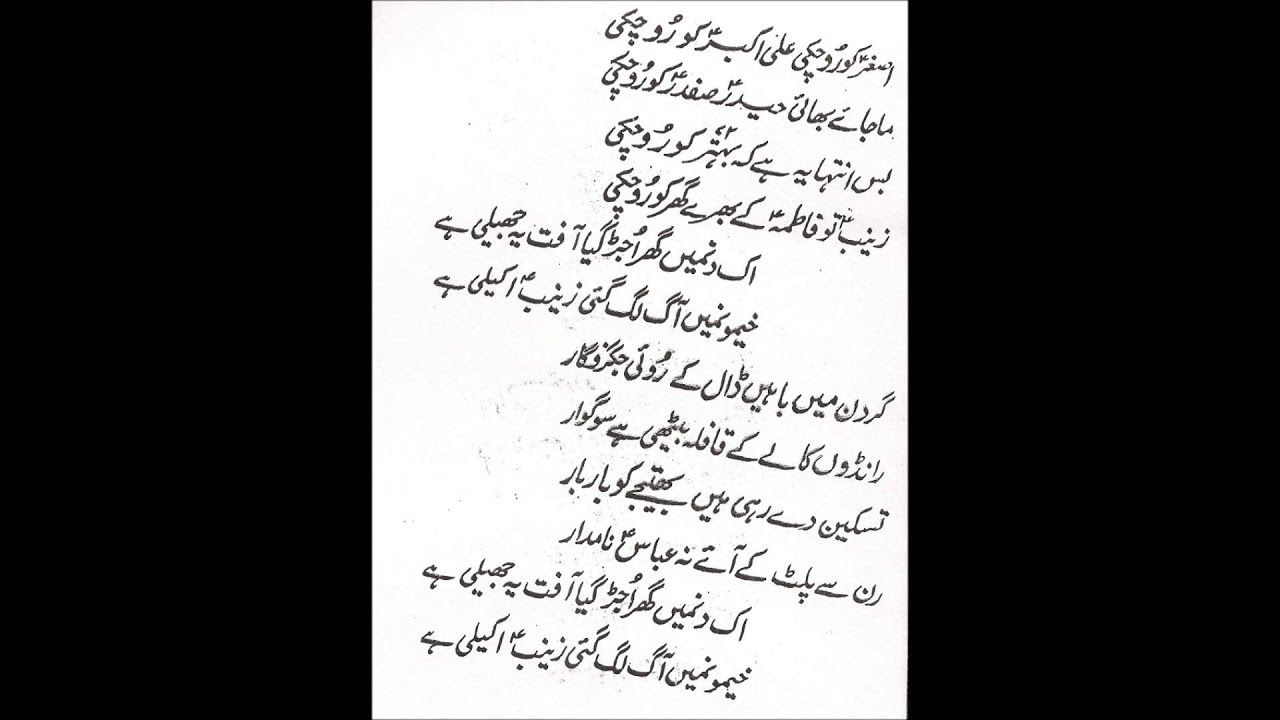 اصغرؑ کو رُو چکی علی اکبرؑ کو رُو چکی
ماجائے بھائی حیدرِؑ صفدر کو رُو چکی
بس انتہا یہ ہے کہ بہتّر کو رُو چکی
زینبؑ تو فاطمہؑ کے بھرے گھر کو رُو چکی
اک دنمیں گھر اُجڑ گیا آفت یہ جھیلی ہے
خیمونمیں آگ لگ گئی زینبؑ اکیلی ہے
گردن میں باہیں ڈال کے رُوئی جگر فگار
رانڈوں کا لے کے قافلہ بیٹھی ہے سوگوار
تسکین دے رہی ہیں بھتیجے کو بار بار
رن سے پلٹ کے آئے نہ عباسؑ نامدار
اک دنمیں گھر اُجڑ گیا آفت یہ جھیلی ہے
خیمونمیں آگ لگ گئی زینبؑ اکیلی ہے